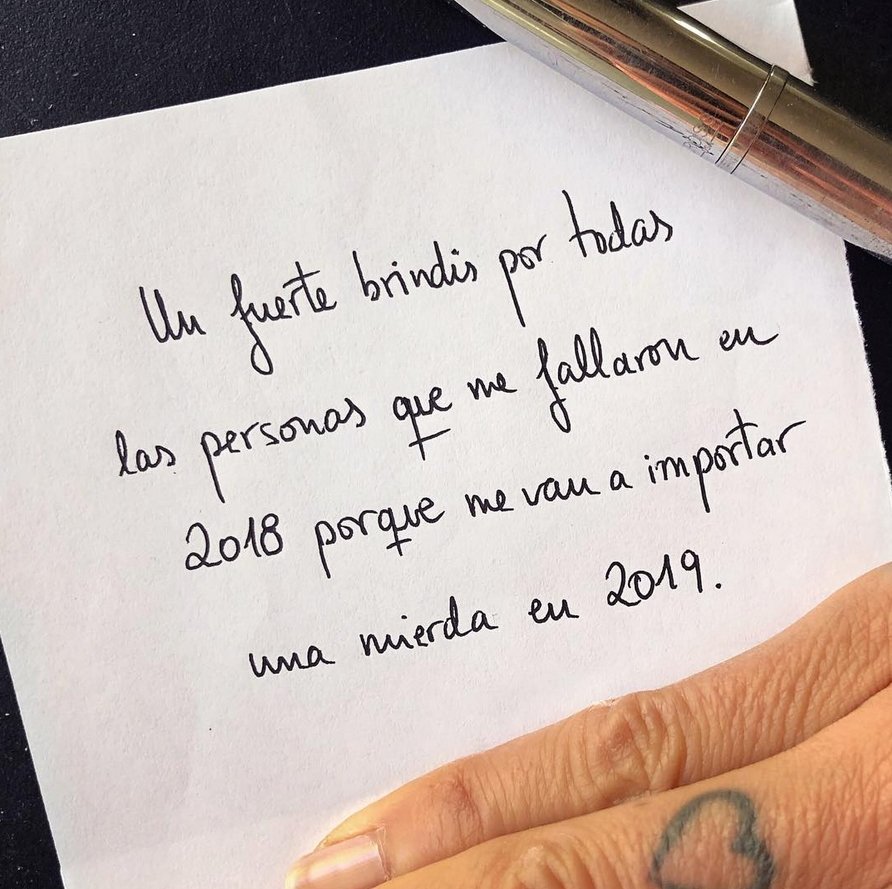 Un fuerte brindis por todas
las personas que me fallaron en
2018 porque me van a importar
una mierda en 2019.